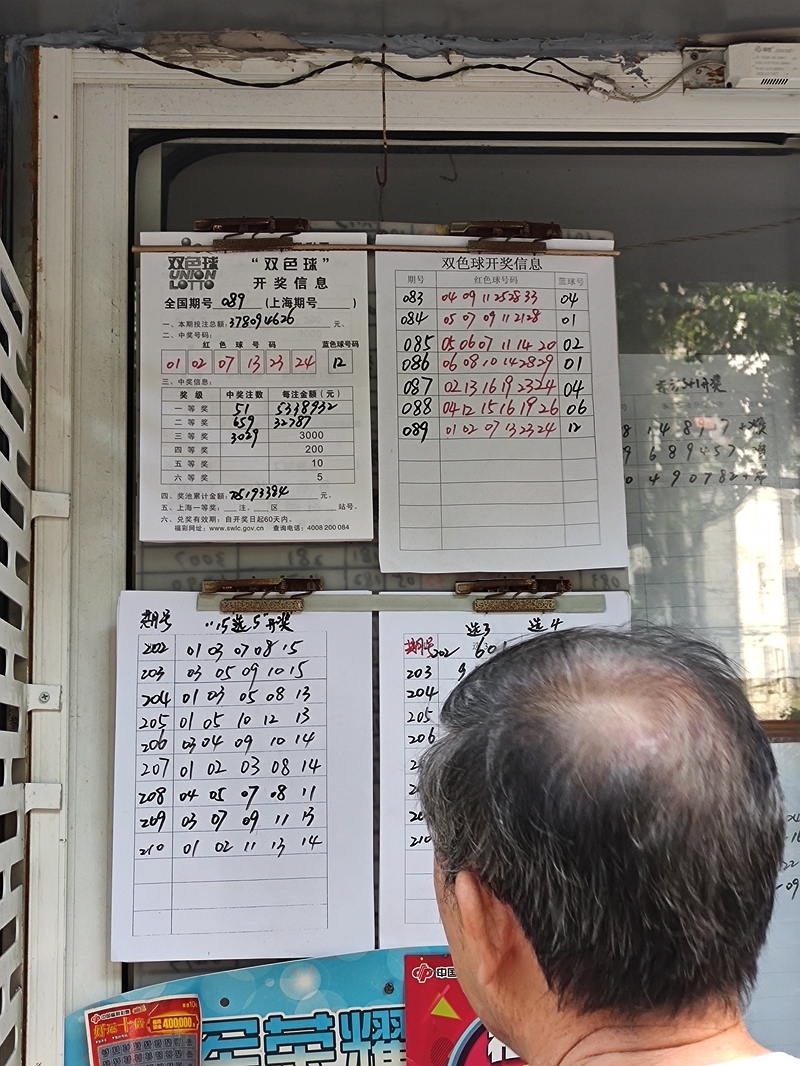 双色球
UNION
LOTTO
“双色球”
开奖信息
全国期号 089 (上海期号 )
一、本期投注总额: 378094626 元、
二、中奖号码:
红色球号码 蓝色球号码
01 02 07 13 23 24 12
三、中奖信息:
奖级 中奖注数 每注金额(元)
一等奖 51 5338932
二等奖 659 32787
三等奖 3029 3000
四等奖 200
五等奖 10
六等奖 5
四、奖池累计金额: 元。
五、上海一等奖: 注、 区 站号。
六、兑奖有效期: 自开奖日起60天内。
福彩网址: www.swlc.gov.cn 查询电话: 4008 200 084
双色球开奖信息
期号 红色球号码 蓝球号
083 04 09 11 25 28 33 04
084 05 07 09 11 21 28 01
085 05 06 07 11 14 20 02
086 06 08 10 14 28 29 01
087 02 13 16 19 23 24 04
088 04 12 15 16 19 26 06
089 01 02 07 13 23 24 12
期号 "15选5"开奖
202 01 03 07 08 15
203 03 05 09 10 15
204 01 03 05 08 13
205 01 05 10 12 13
206 03 04 09 10 14
207 01 02 03 08 14
208 04 05 07 08 11
209 03 07 09 11 13
210 01 02 11 13 14
选3 选4
期号
202 601
203 9
204
205
206
210
荣耀
中国
400,000